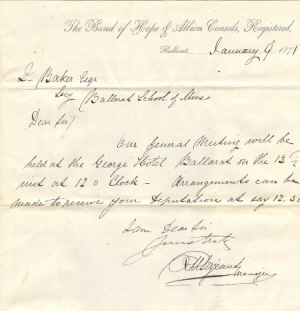 The Band of Hope & Albion Consols, Registered,
Ballarat, January 9 1871
Baker Esqr
Secy (Ballarat School of Mines
Dear Sir)
Our General Meeting will be
held at the George Hotel Ballarat on the 13th
inst at 12 o Clock - Arrangements can be
made to receive your Deputation at say 12.30
I am Dear Sir
Yours truly
Manager